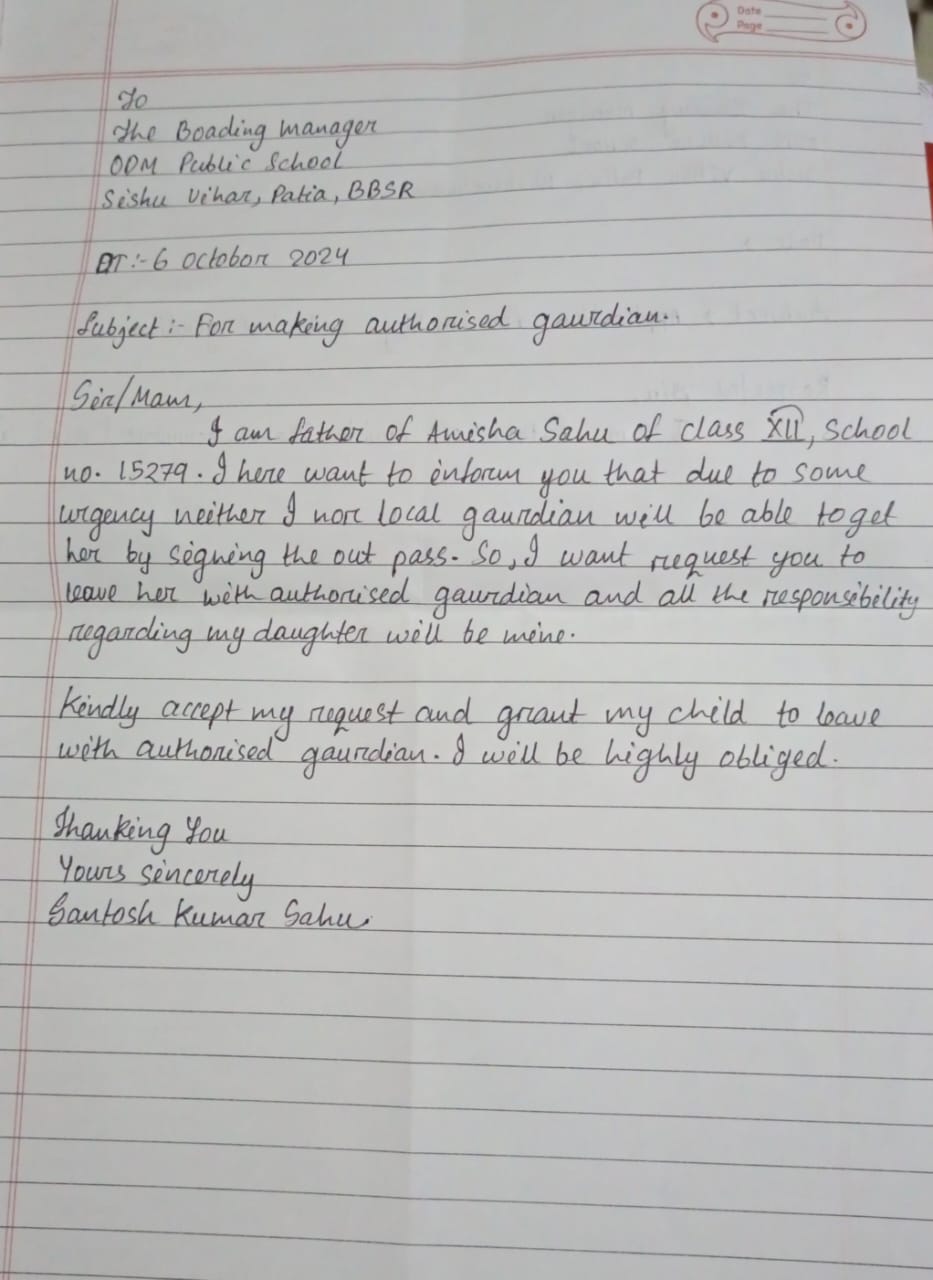 Date
Page
To
The Boading Manager
ODM Public School
Sishu Vihar, Patia, BBSR
DT:- 6 October 2024
Subject:- For making authorised gaurdian.
Sir/Mam,
I am father of Amisha Sahu of class XII, School
no. 15279. I here want to inform you that due to some
urgency neither I nor local gaurdian will be able to get
her by signing the out pass. So, I want request you to
leave her with authorised gaurdian and all the responsibility
regarding my daughter will be mine.
Kindly accept my request and grant my child to leave
with authorised gaurdian. I will be highly obliged.
Thanking You
Yours sincerely
Santosh Kumar Sahu.